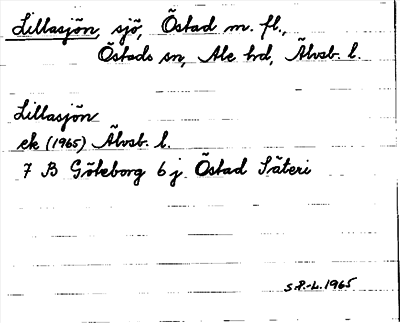 Lillasjön, sjö, Östad m. fl.,
Östads sn, Ale hd, Älvsb. l.
Lillasjön
ek (1965) Älvsb. l.
7 B Göteborg 6 j Östad Säteri
S.P.-L. 1965